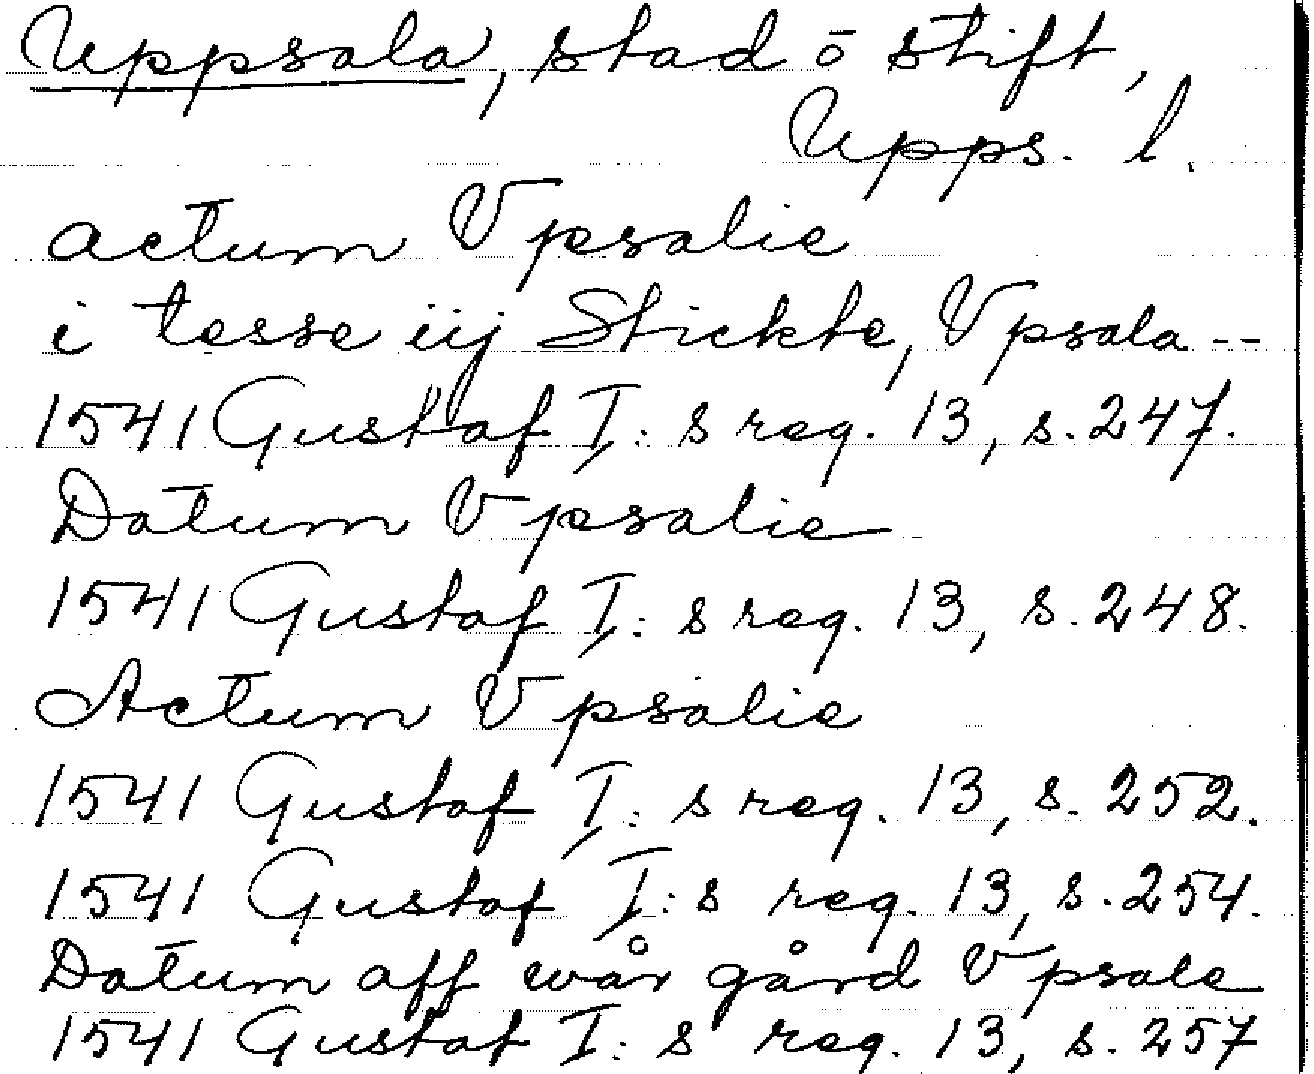 Uppsala, stad ō stift,
Upps. l.
actum Vpsalie
i tesse iij Stickte, Vpsala --
1541 Gustaf I:s reg. 13, s. 247.
Datum Vpsalie
1541 Gustaf I:s reg. 13, s. 248.
Actum Vpsalie
1541 Gustaf I:s reg. 13, s. 252.
1541 Gustaf I:s reg. 13, s. 254.
Datum aff wår gård Vpsale
1541 Gustaf I:s reg. 13, s. 257